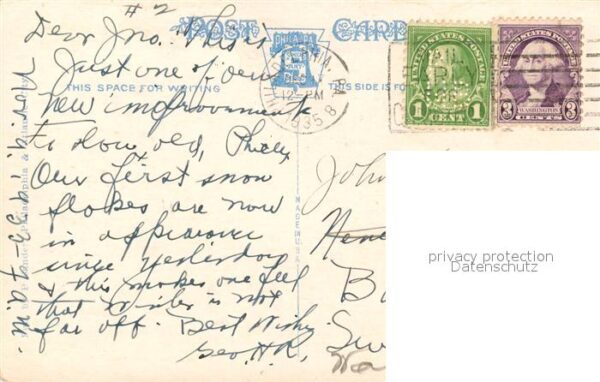 #2
POST CARD
Dear Jno. This is
Just one of our
THIS SPACE FOR WRITING
THIS SIDE IS FOR
new improvements
to slow old, Phily
Our first snow
flakes are now
in appearance
since yesterday
& this makes one feel
that Winter is not
far off. Best Wishes
Geo. H.R.
Nov. 9, 1935-7 a.m.
MADE IN USA
PHILADELPHIA, PA.
12-PM
1935
MAIL
EARLY
UNITED STATES POSTAGE
1 CENT 1
UNITED STATES POSTAGE
WASHINGTON
3 CENTS 3
John
B
privacy protection
Datenschutz